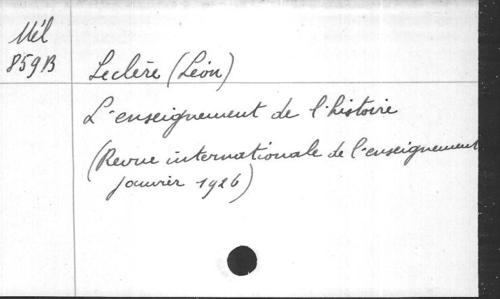 Mél
859B
Leclère (Léon)
L'enseignement de l'histoire
(Revue internationale de l'enseignement
janvier 1926)